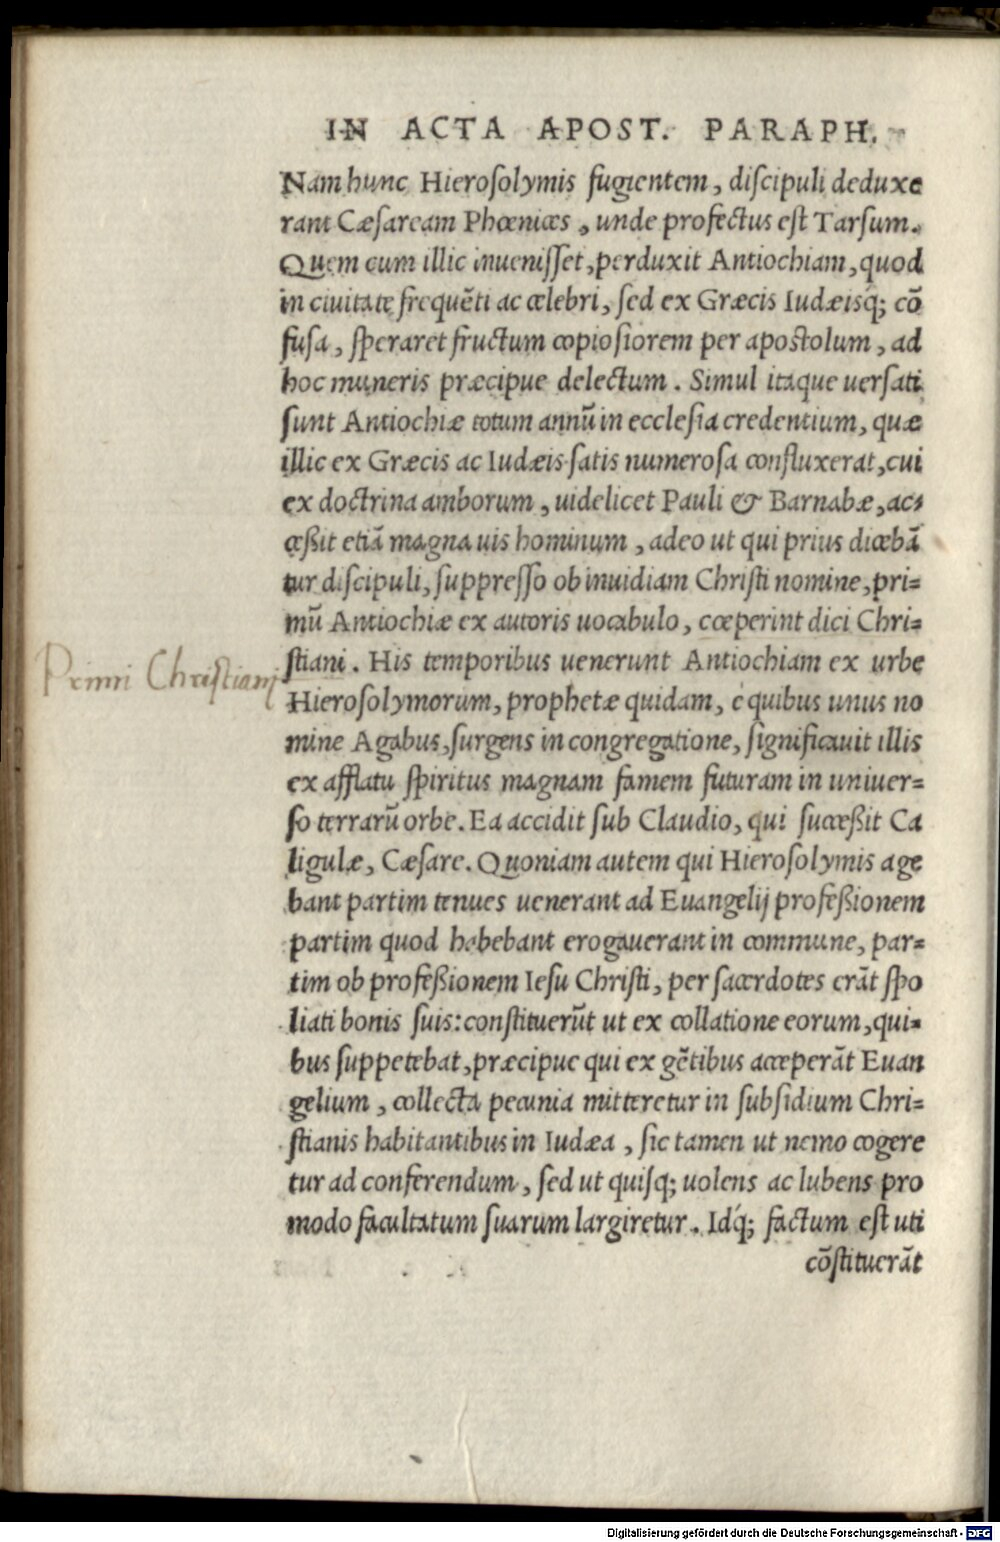 IN ACTA APOST. PARAPH.
Nam hunc Hierosolymis fugientem, discipuli deduxe
rant Cæsaream Phœnices, unde profectus est Tarsum.
Quem cum illic inuenisset, perduxit Antiochiam, quod
in ciuitate frequēti ac celebri, sed ex Græcis Iudæisq́; cō
fusa, speraret fructum copiosiorem per apostolum, ad
hoc muneris præcipue delectum. Simul itaque uersati
sunt Antiochiæ totum annū in ecclesia credentium, quæ
illic ex Græcis ac Iudæis satis numerosa confluxerat, cui
ex doctrina amborum, uidelicet Pauli & Barnabæ, ac=
ceßit etiā magna uis hominum, adeo ut qui prius dicebā
tur discipuli, suppresso ob inuidiam Christi nomine, pri=
mū Antiochiæ ex autoris uocabulo, cœperint dici Chri=
stiani. His temporibus uenerunt Antiochiam ex urbe
Primi Christiani
Hierosolymorum, prophetæ quidam, è quibus unus no
mine Agabus, surgens in congregatione, significauit illis
ex afflatu spiritus magnam famem futuram in uniuer=
so terrarū orbe. Ea accidit sub Claudio, qui succeßit Ca
ligulæ, Cæsare. Quoniam autem qui Hierosolymis age
bant partim tenues uenerant ad Euangelij profeßionem
partim quod habebant erogauerant in commune, par=
tim ob profeßionem Iesu Christi, per sacerdotes erāt spo
liati bonis suis: constituerūt ut ex collatione eorum, qui=
bus suppetebat, præcipue qui ex gētibus acceperāt Euan
gelium, collecta pecunia mitteretur in subsidium Chri=
stianis habitantibus in Iudæa, sic tamen ut nemo cogere
tur ad conferendum, sed ut quisq; uolens ac lubens pro
modo facultatum suarum largiretur. Idq́; factum est uti
cōstituerāt
Digitalisierung gefördert durch die Deutsche Forschungsgemeinschaft - DFG